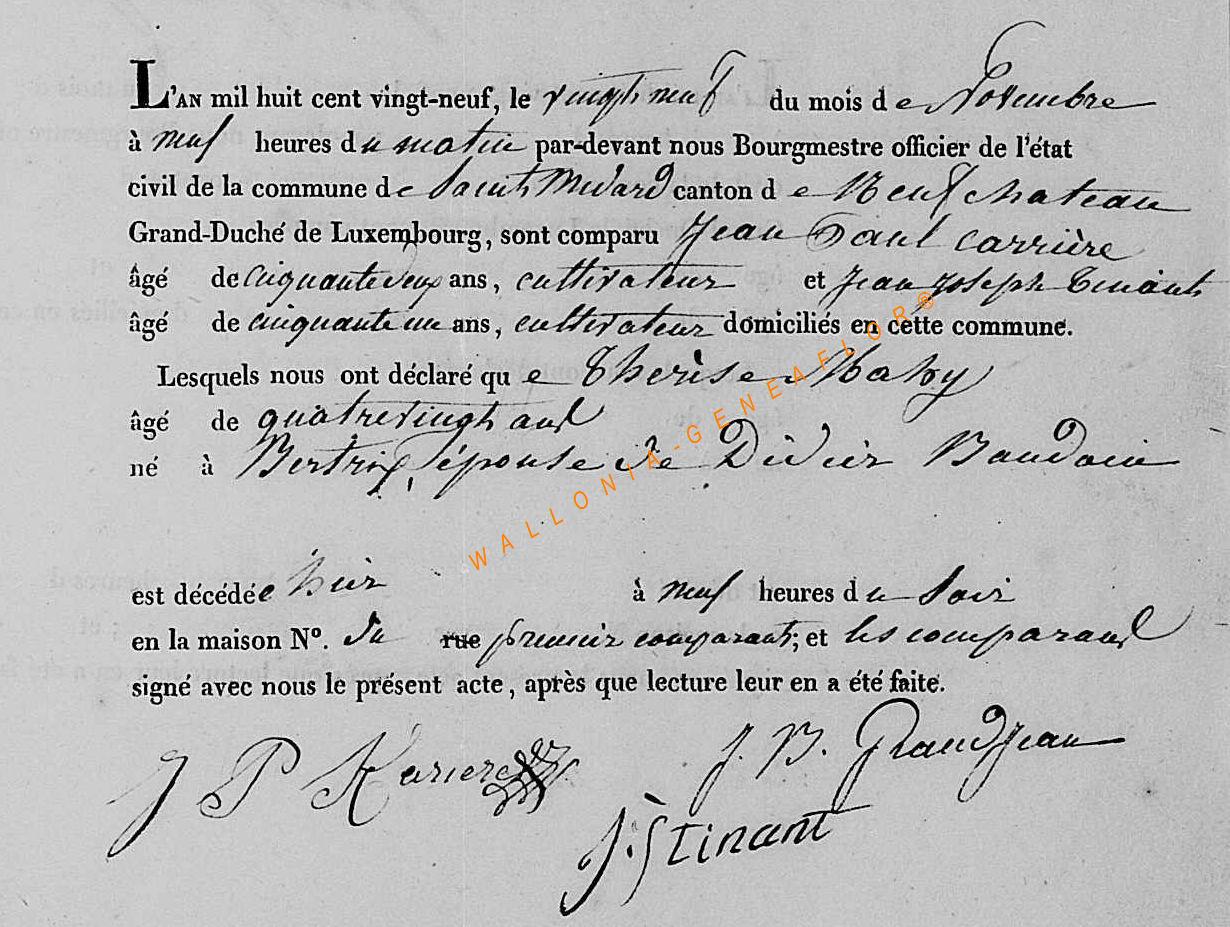 L'AN mil huit cent vingt-neuf, le vingt neuf du mois de Novembre
à neuf heures du matin par-devant nous Bourgmestre officier de l'état
civil de la commune de Saint Médard canton de Neufchateau
Grand-Duché de Luxembourg, sont comparu Jean Paul Carrière
âgé de cinquante deux ans, cultivateur et Jean Joseph Tinant
âgé de cinquante un ans, cultivateur domiciliés en cette commune.
Lesquels nous ont déclaré que Thérèse Mahy
âgé de quatrevingt ans
né à Bertrix, épouse de Didier Baudoin
est décédée hier à neuf heures du soir
en la maison N°. du rue premier comparant; et les comparans
signé avec nous le présent acte, après que lecture leur en a été faite.
J P Kariere J. B. Grandjean
J. J Tinant
WALLONIA-GENEAFLOR®